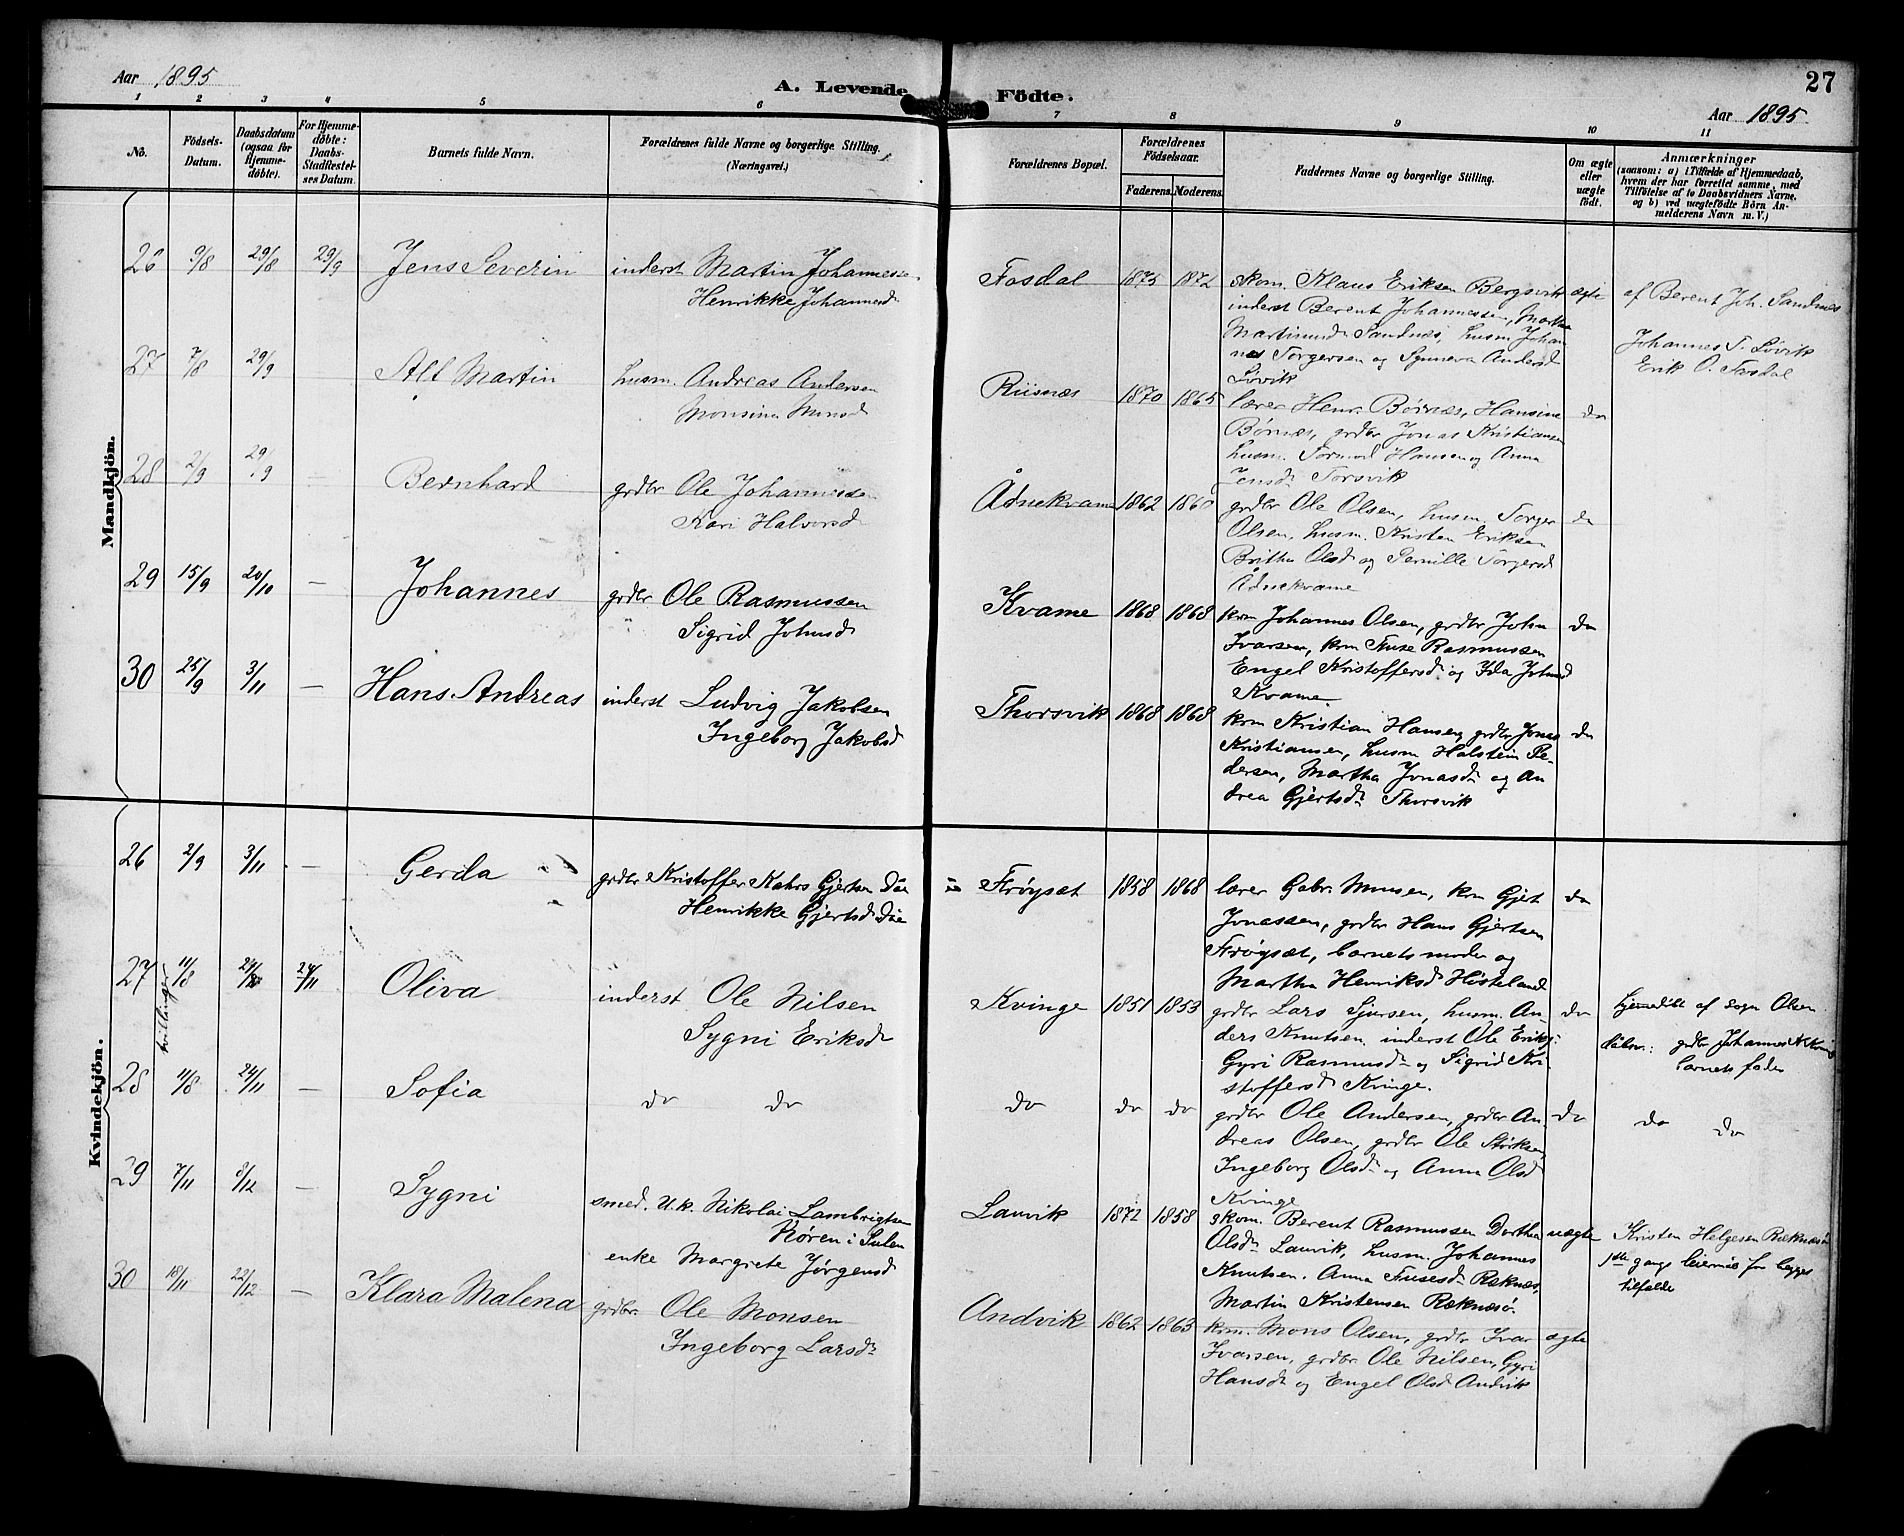 Aar 1895
A. Levende Födte.
27
Aar 1895
1 2 3 4 5 6 7 8 9 10 11
No.
Födsels-Datum.
Daabsdatum (ogsaa for Hjemme-døbte).
For Hjemme-døbte: Daabs-Stadfæstel-ses Datum.
Barnets fulde Navn.
Forældrenes fulde Navne og borgerlige Stilling. (Næringsvei.)
Forældrenes Bopæl.
Forældrenes Födselsaar.
Faderens. Moderens.
Faddernes Navne og borgerlige Stilling.
Om ægte eller uægte födt.
Anmærkninger
(saasom: a) i Tilfælde af Hjemmedaab,
hvem der har forrettet samme, med
Tilföielse af to Daabsvidners Navne,
og b) ved uægtefödte Börn An-
melderens Navn m. V.)
Mandkjön.
26 9/8 29/8 29/9 Jens Severin inderst Martin Johannessen
Henrikke Johannesd.
Fosdal 1875 1872 skom. Klaus Eriksen Bergsvik ægte
inderst Berent Johannessen, Martha
Martinusd. Sandnes, husm Johan
nes Torgersen og Synneva Andersd
Lövik
af Berent Joh. Sandnes
Johannes T. Lövik
Erik O. Fosdal
27 7/8 29/9 Alf Martin husm. Andreas Andersen
Monsine Monsd
Riisnæs 1870 1865 lærer Henr. Börnæs, Hansine do
Börnæs, grdbr Jonas Kristiansen
husm. Tormod Hansen og Anna
Jensd. Torsvik
28 2/9 29/9 — Bernhard grdbr Ole Johannessen
Kari Halvorsd.
Ådnekvame 1862 1860 grdbr Ole Olsen, husm. Torger do
Olsen, husm. Kristen Eriksen
Britha Olsd og Pernille Torgersd
Ådnekvame
29 15/9 20/10 — Johannes grdbr Ole Rasmussen
Sigrid Johnsd.
Kvame 1868 1868 krm Johannes Olsen, grdbr, John do
Ivarsen, krm Truse Rasmussen
Engel Kristoffersd. og Ida Johnsd
Kvame
30 25/9 3/11 — Hans Andreas inderst Ludvig Jakobsen
Ingeborg Jakobsd
Thorsvik 1868 1868 krm Kristian Hansen, grdbr, Jonas do
Kristiansen, husm Halstein Pe-
dersen, Martha Jonasd. og An
drea Gjertsd. Thorsvik
Kvindekjön.
26 2/9 3/11 — Gerda grdbr Kristoffer Kahrs Gjertsen Däe
Henrikke Gjertsd. Däe
Fröyset 1858 1868 lærer Gabr. Munsen, krm Gjert do
Jonassen, grdbr Hans Gjertsen
Fröyset, barnets moder og
Martha Henriksd. Histeland
tvillinger
27 11/8 24/11 Oliva inderst Ole Nilsen
Sygni Eriksd.
Kvinge 1851 1853 grdbr Lars Sjursen, husm. An- do
ders Knutsen inderst Ole Eriks.
Gyri Rasmusd. og Sigrid Kri-
stoffersd. Kvinge.
hjemmedöbt af sogn Olsen
döbsv.: grdbr Johannes N. Kvinge
barnets fader
28 11/8 24/11 — Sofia do do
do do do grdbr Ole Andersen, grdbr An- do
dreas Olsen, grdbr Ole Störksen
Ingeborg Olsd. og Anna Olsd
Kvinge
do do
29 7/11 8/12 — Sygni smed. u.k. Nikolai Lambrigtsen
Nören i Sulen
enke Margrete Jörgensd
Lauvik 1872 1858 skom. Berent Rasmussen Dorthea uægte
Olsd. Lauvik, husm. Johannes
Knutsen. Anna Trusesd. Reknes,
Martin Kristensen Reknesö.
Kristen Helgesen Reknesö
1ste gangs leiermål for begges
tilfælde
30 18/11 22/12 — Klara Malena grdbr. Ole Monsen
Ingeborg Larsd.
Andvik 1862 1863 krm. Mons Olsen, grdbr Ivar ægte
Ivarsen, grdbr. Ole Nilsen, Gyri
Hansd. og Engel Olsd Andvik